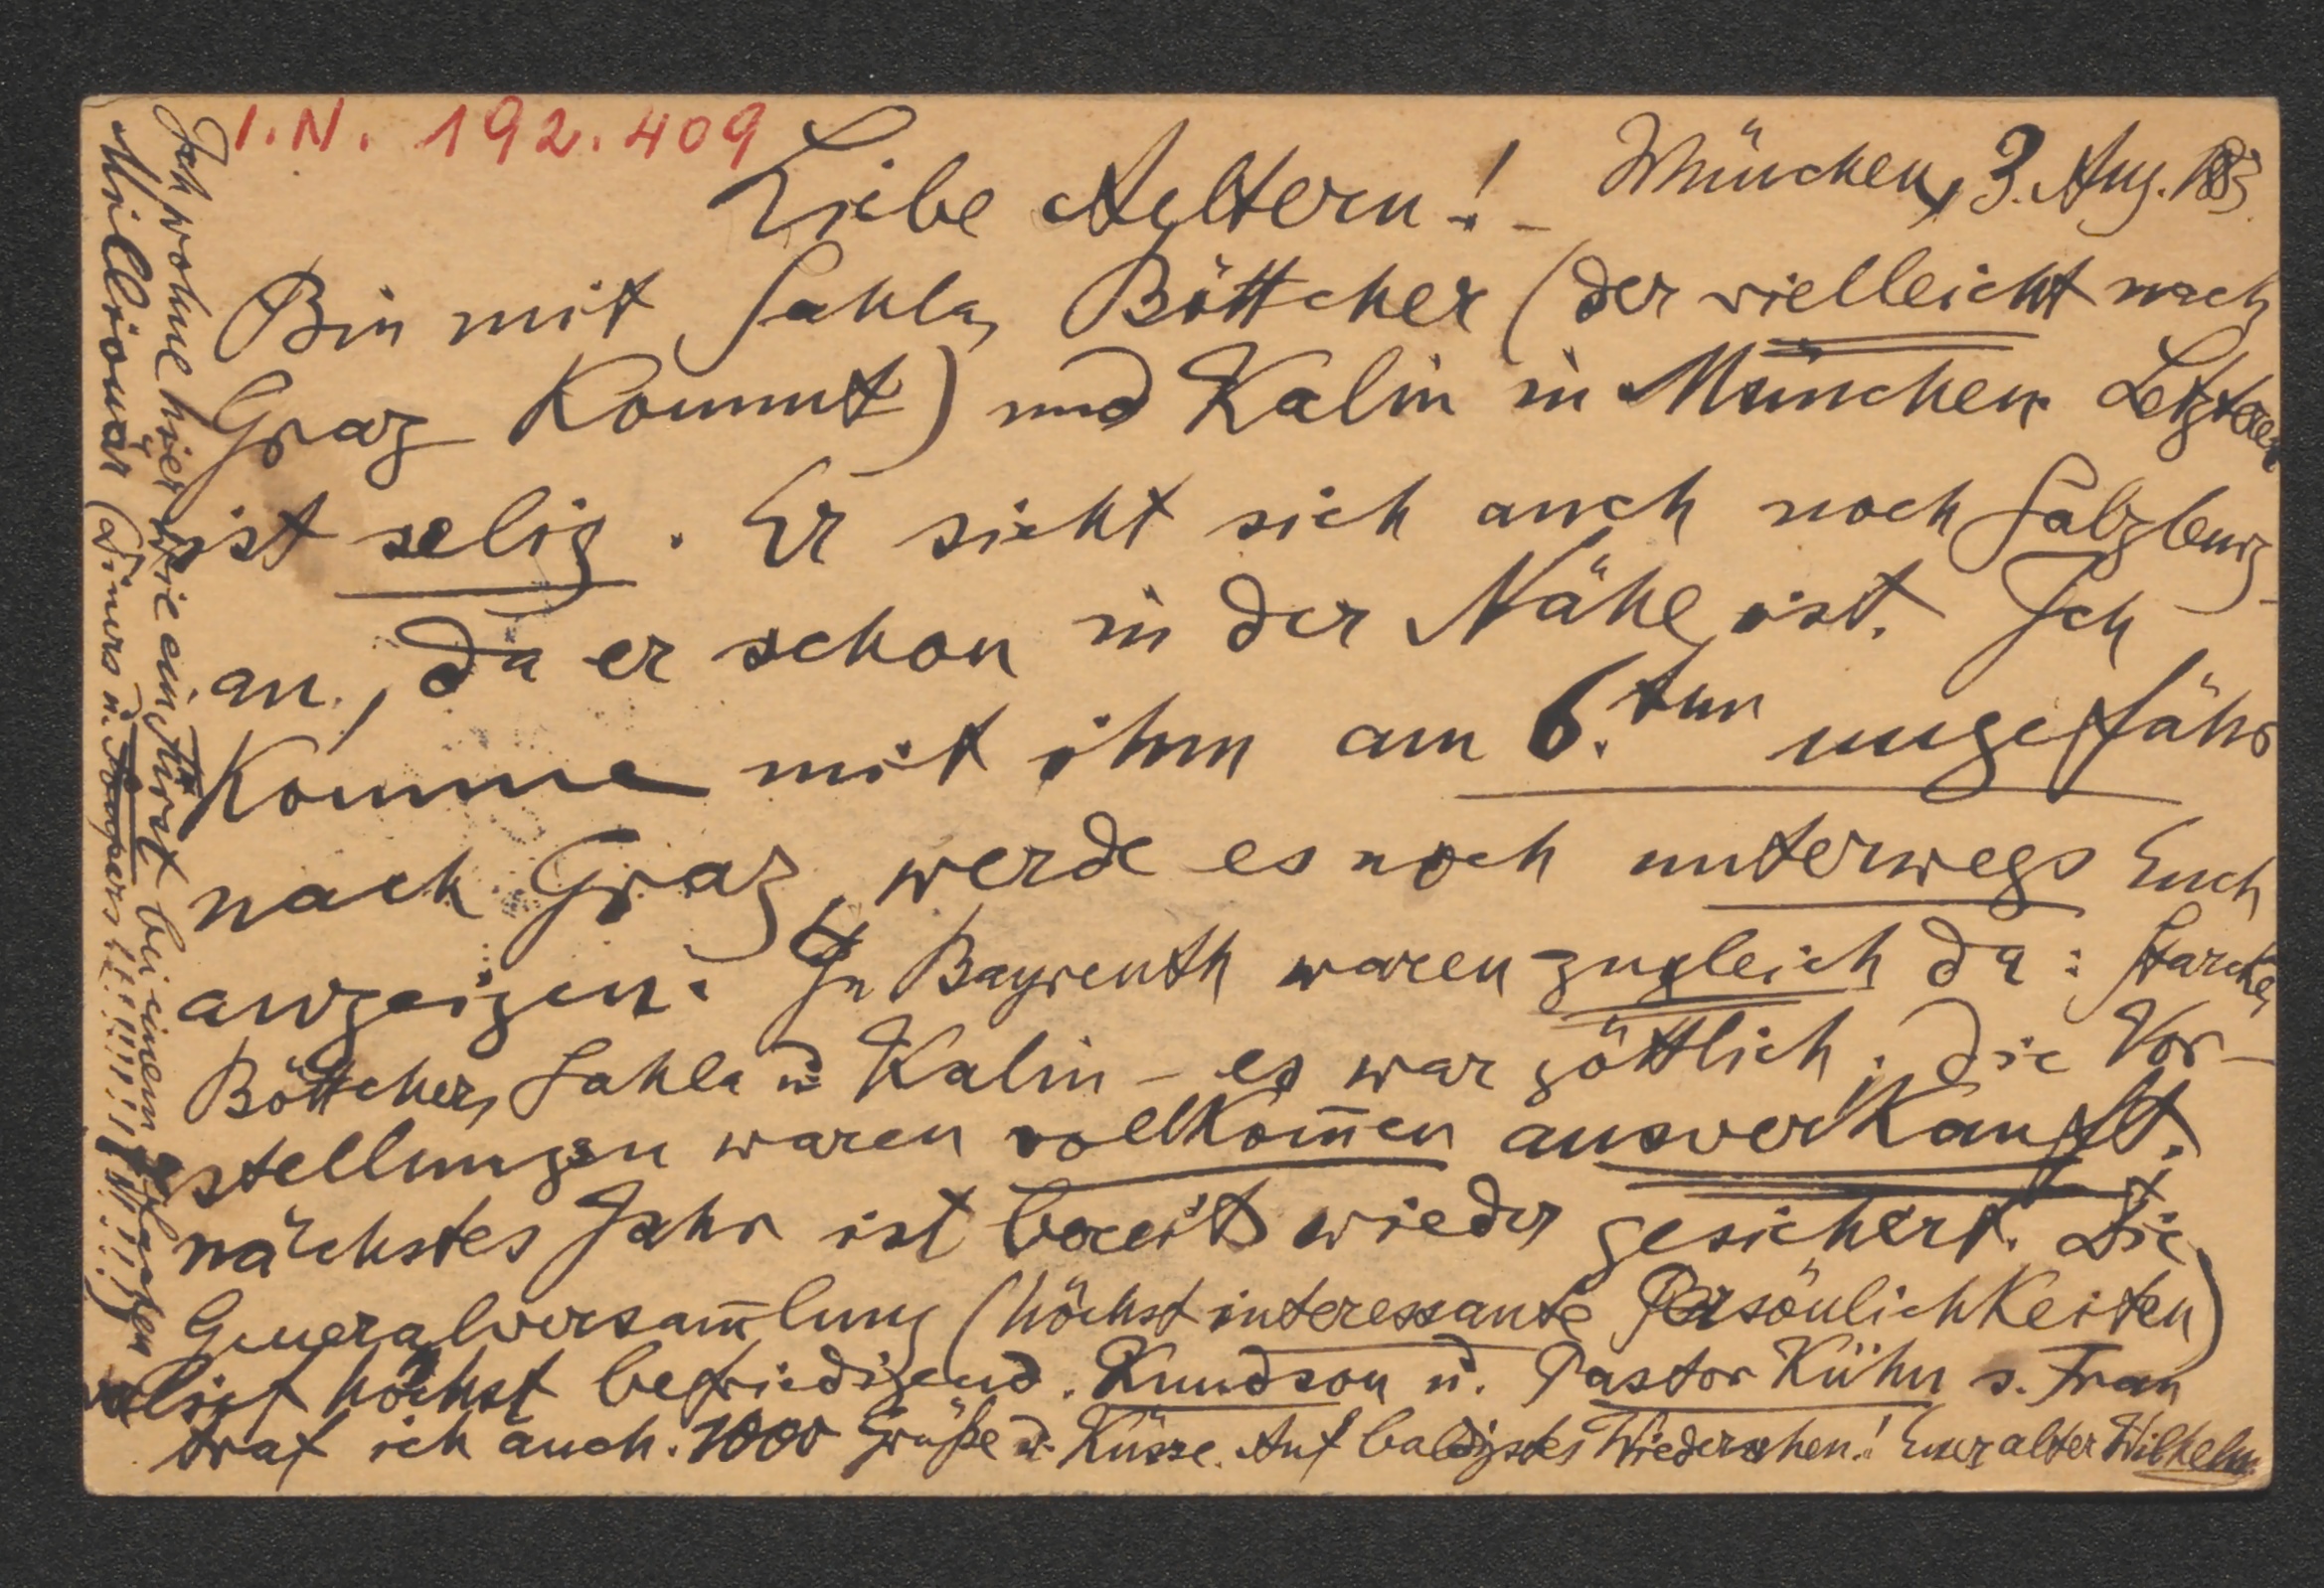 I.N. 192.409
München, 3. Aug. 83.
Liebe Aeltern! –
Bin mit Sahla, Böttcher (der vielleicht nach
Graz kommt) und Kalin in München. Letzterer
ist selig. Er sieht sich auch noch Salzburg
an, da er schon in der Nähe ist. Ich
komme mit ihm am 6.ten ungefähr
nach Graz, werde es noch unterwegs Euch
anzeigen. In Bayreuth waren zugleich da: Starcke,
Böttcher, Sahla u. Kalin – es war göttlich. Die Vor-
stellungen waren vollkom̄en ausverkauft.
nächstes Jahr ist bereits wieder gesichert. Die
Generalversam̄lung (höchst interessante Persönlichkeiten)
lief höchst befriedigend. Knudson u. Pastor Kühn s. Frau
traf ich auch. 1000 Grüße u. Küsse. Auf baldigstes Wiedersehen! Euer alter Wilhelm
Ich wohne hier wie ein Fürst bei einem
Millionär (Diners u. Soupers